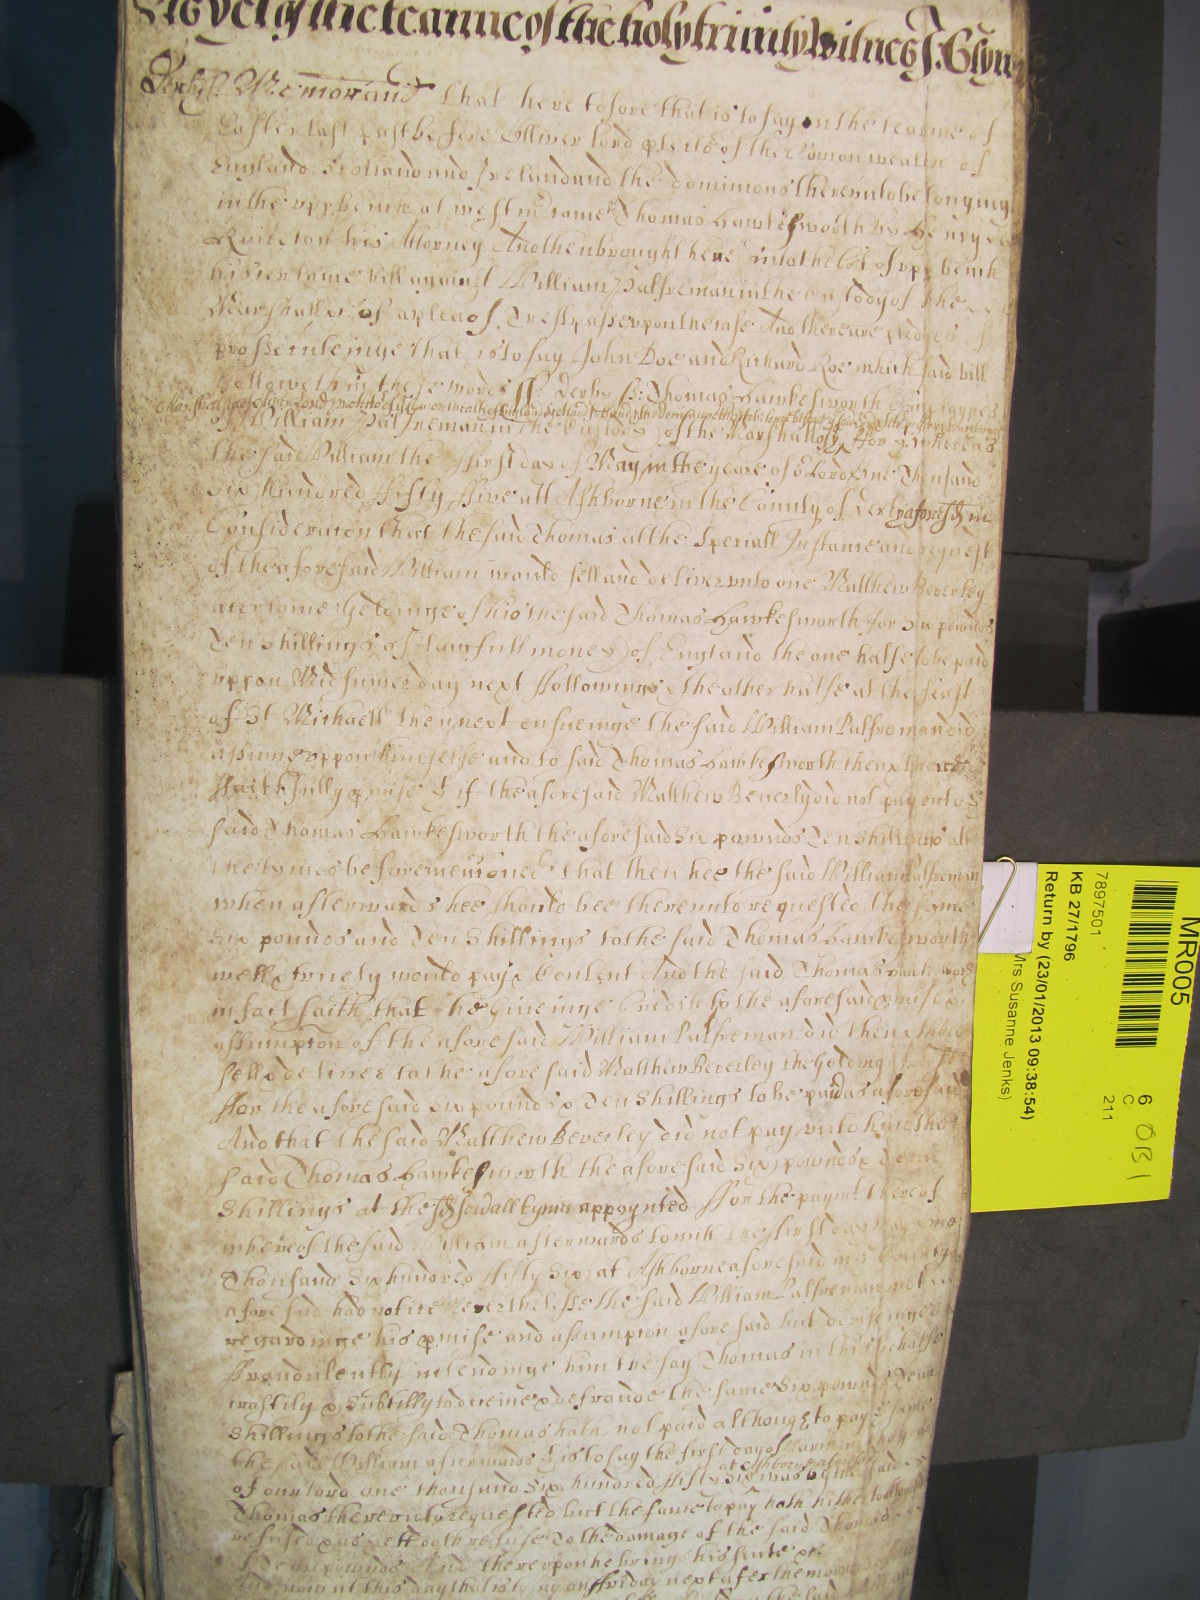 As yet of the tearme of the holy trinity Witnes J. Glyn
Derbyss. Memorand that heretofore that is to say in the tearme of
Easter last past before Olliver lord p'tector of the Comonwealth of
England Scotland and Ireland and the dominions thereunto belonging
in the upp bench at westm'r came Thomas Hawkesworth by Henry
his Attorney And then brought here into the Co't of upp bench
his certaine bill against William Palfreman in the Custody of the
Marshall &c of a plea of Trespasse upon the case And there are pledges of
prossecuteinge that is to say John Doe and Richard Roe which said bill
followeth in these words ss: Derby ss: Thomas Hawkesworth Complaynes
of William Palfreman in the Custody of the Marshall &c For y't whereas
the said William the ffirst day of May in the yeare of o'r Lord One Thousand
Six hundred ffifty ffive att Ashborne in the County of Derby aforesd in
Consideracon that the said Thomas at the speciall Instance and request
of the aforesaid William would sell and deliver unto one Matthew Beverley
a certaine Geldinge of his the said Thomas Hawkesworth for Six pounds
Ten Shillings of lawfull money of England the one halfe to be paid
uppon Midsumer day next ffollowinge & the other halfe at the feast
of St Michaell then next ensueinge the said William Palfreman did
assume uppon himselfe and to said Thomas Hawkesworth then & there
ffaithfully p'mise yt if the aforesaid Matthew Beverly did not pay unto ye
said Thomas Hawkesworth the aforesaid Six pownds Ten Shillings att
the tymes beforemencioned that then hee the said William Palfreman
when afterwards hee should bee thereunto requested the same
Six pounds and Ten Shillings to the said Thomas Hawkesworth
well & truely would pay & Content And the said Thomas Hawkesworth
in fact saith that he Giveinge Creditt to the aforesaid p'mise &
assumption of the aforesaid William Palfreman did then & there
sell & deliver to the aforesaid Matthew Beverley the Gelding aforesd
ffor the aforesaid Six pounds & Ten Shillings to be paid as aforesaid
And that the said Matthew Beverley did not pay unto him the
said Thomas Hawkesworth the aforesaid Six pownds & Tenn
Shillings at the sd sevall tymes appoynted ffor the paymt thereof
whereof the said William afterwards to witt the first day May one
Thousand Six hundred ffifty Six at Ashborne aforesaid in ye County
aforesaid had notice Neverthelesse the said William Palfreman not
regardinge his p'mise and assumption aforesaid but
ffraudulently intendinge him the say Thomas in this behalfe
wastily & Subtilly to deceive & defraude the same Six pownds Tenn
Shillings to the said Thomas hath not paid although to pay ye same
the said William afterwards yt is to say the first day of in the yeare
at Ashborne aforesd
of our lord one thousand Six hundred ffifty Six was by the said
Thomas thereunto requested but the same to pay hath hitherto altogether
refused & as yett doth refuse To the damage of the said Thomas
of Tenn pownds And thereupon he brings his suite &c.
And now at this day that is to say on ffriday next after the morrow
MR005
7897501
KB 27/1796
Return by (23/01/2013 09:38:54)
Mrs Susanne Jenks)
6
C
211
OB1